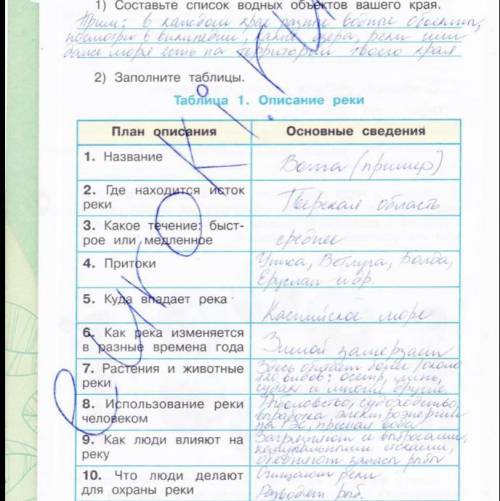 1) Составьте список водных объектов вашего края.
Прим: в каждом крае разные водные
посмотри в википедии, какие озера, реки или
даже моря есть на территории твоего края
2) Заполните таблицы.
Таблица 1. Описание реки
План описания Основные сведения
1. Название Волга (пример)
2. Где находится исток
реки Тверская область
3. Какое течение: быст-
рое или медленное среднее
4. Притоки Унжа, Ветлуга,
Еруслан и др.
5. Куда впадает река Каспийское море
6. Как река изменяется
в разные времена года Зимой замерзает
7. Растения и животные
реки Здесь обитает более
120 видов: осетр,
судак и многие другие
8. Использование реки
человеком Рыболовство, судоходство,
электроэнергии
ГЭС, пресная вода
9. Как люди влияют на
реку Загрязняют и выбросами,
запасы рыбы
10. Что люди делают
для охраны реки Очищают реки
Разводят рыб.